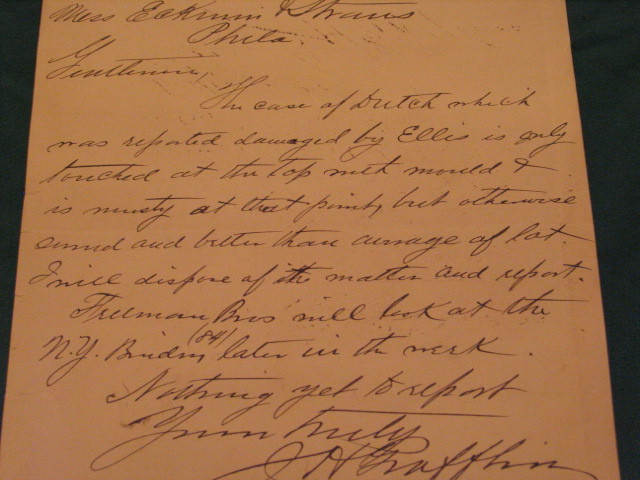 Mess Eckman & Straus
Phila
Gentlemen,
The case of Dutch which
was reported damaged by Ellis is only
touched at the top with mould &
is musty at that point, but otherwise
sound and better than average of lot.
I will dispose of the matter and report.
Freeman Bros will look at the
N.Y. Binders (84) later in the week.
Nothing yet to report
Yours truly